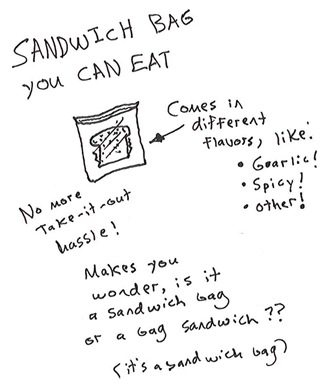 SANDWICH BAG
YOU CAN EAT
Comes in
different
flavors, like:
• Gearlic!
• Spicy!
• other!
No more
Take-it-out
hassle!
Makes you
wonder, is it
a sandwich bag
or a bag sandwich??
(it's a sandwich bag)